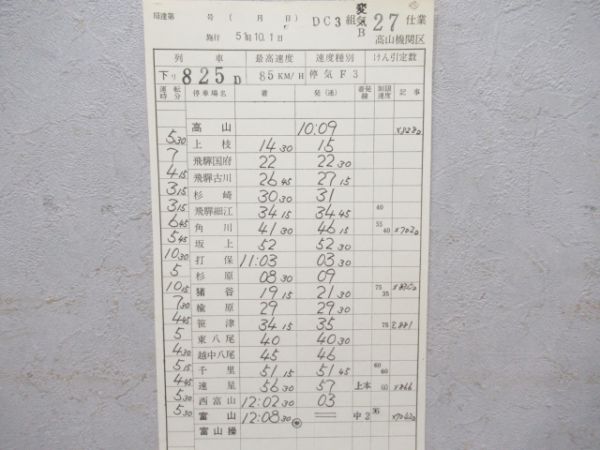 局達第 号 ( 月 日) DC3組 変気B 27 仕業
施行 51年10.1日 高山機関区
列車 最高速度 速度種別 けん引定数
下り 825D 85KM/H 停気F3
運転時分 停車場名 着 発(通) 着発線 制限速度 記事
高山 10:09
5 30 上枝 14 30 15
7 飛騨国府 22 22 30
4 15 飛騨古川 26 45 27 15
3 15 杉崎 30 30 31
3 15 飛騨細江 34 15 34 45 40
6 45 角川 41 30 46 15 55 40 ×702D
5 45 坂上 52 52 30
10 30 打保 11:03 03 30
5 杉原 08 30 09
10 15 猪谷 19 15 21 30 75 35
7 30 楡原 29 29 30
4 45 笹津 34 15 35 75
5 東八尾 40 40 30
4 30 越中八尾 45 46
5 15 千里 51 15 51 45 60 60
4 45 速星 56 30 57 上本 60 ×866
5 30 西富山 12:02 30 03
5 30 富山 12:08 30 = 中2
富山操